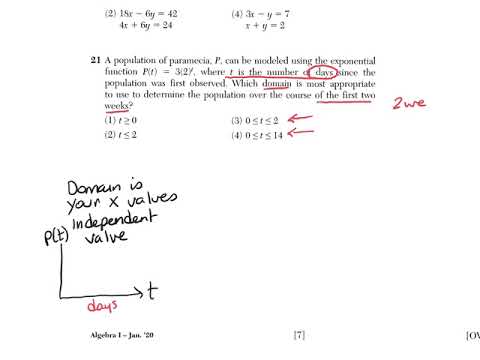 (2) 18x − 6y = 42 (4) 3x − y = 7
4x + 6y = 24 x + y = 2
21 A population of paramecia, P, can be modeled using the exponential
function P(t) = 3(2)ᵗ, where t is the number of days since the
population was first observed. Which domain is most appropriate
to use to determine the population over the course of the first two
weeks?
(1) t ≥ 0 (3) 0 ≤ t ≤ 2
(2) t ≤ 2 (4) 0 ≤ t ≤ 14
2 we
Domain is
your x values
independent
value
P(t)
t
days
Algebra I – Jan. '20 [7] [OV